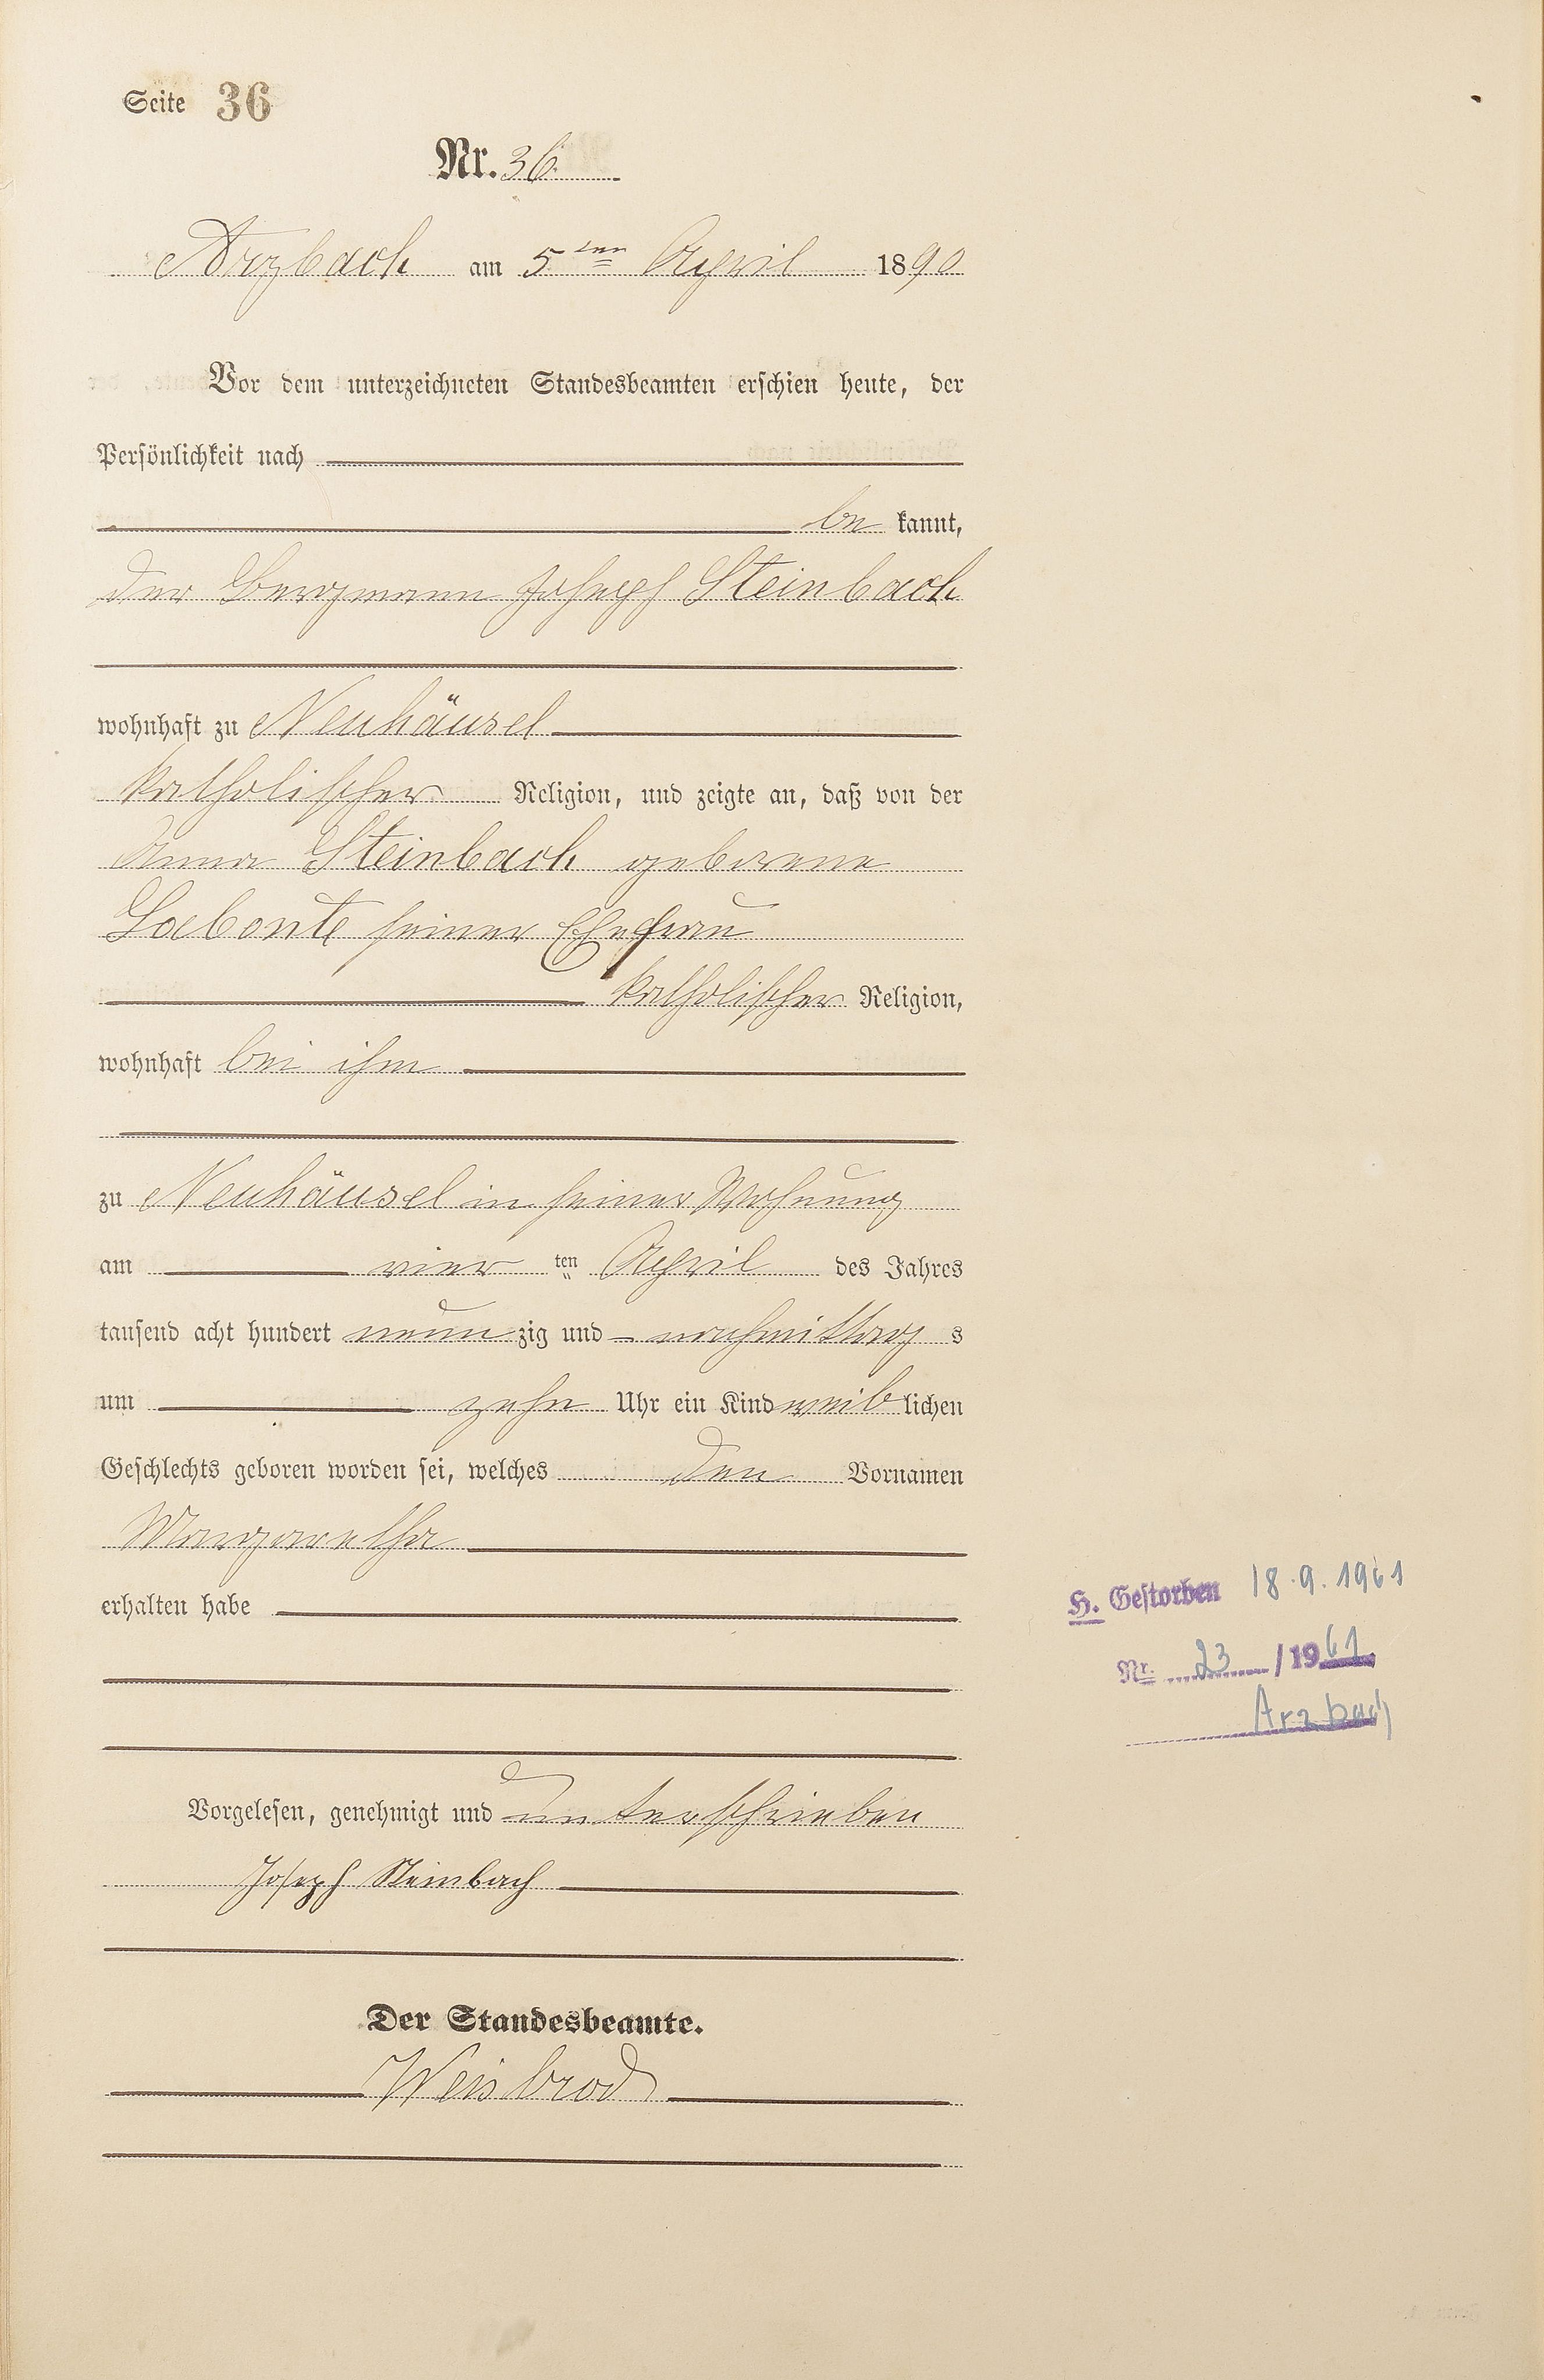 Seite 36
Nr. 36.
Arzbach am 5ten April 1890
Vor dem unterzeichneten Standesbeamten erschien heute, der
Persönlichkeit nach
be kannt,
der Bergmann Joseph Steinbach
wohnhaft zu Neuhäusel
katholischer Religion, und zeigte an, daß von der
Anna Steinbach geborene
Labonte seiner Ehefrau
katholischer Religion,
wohnhaft bei ihm
zu Neuhäusel in seiner Wohnung
am vier ten April des Jahres
tausend acht hundert neun zig und nachmittag s
um zehn Uhr ein Kind weib lichen
Geschlechts geboren worden sei, welches den Vornamen
Margaretha
erhalten habe
H. Gestorben 18.9.1961
Nr. 23 / 1961
Arzbach
Vorgelesen, genehmigt und unterschrieben
Joseph Steinbach
Der Standesbeamte.
Weisbrod